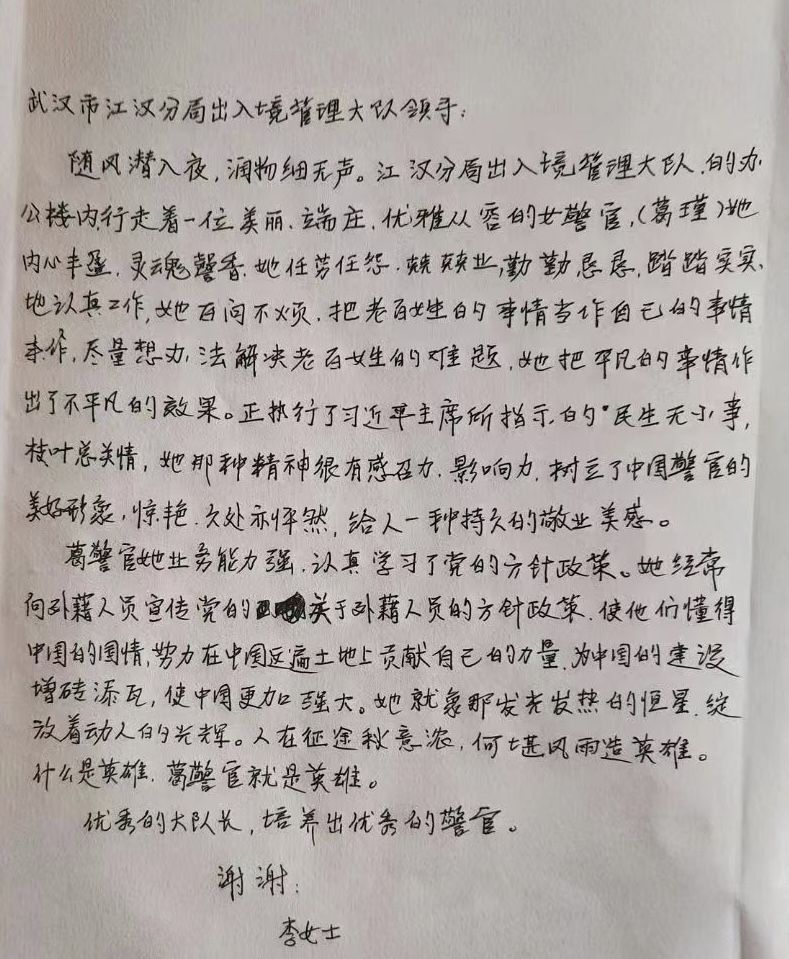 武汉市江汉分局出入境管理大队领导:
随风潜入夜,润物细无声。江汉分局出入境管理大队.的办
公楼内行走着一位美丽.端庄.优雅从容的女警官,(葛瑾)她
内心丰盈.灵魂馨香.她任劳任怨.兢兢业,勤勤恳恳,踏踏实实.
地认真工作,她百问不烦.把老百姓的事情当作自己的事情
来作,尽量想办法解决老百姓的难题.她把平凡的事情作
出了不平凡的效果。正执行了习近平主席所指示.的"民生无小事,
枝叶总关情,她那种精神很有感召力.影响力.树立了中国警官的
美好形象,惊艳.久处亦怦然,给人一种持久的敬业美感。
葛警官她业务能力强.认真学习了党的方针政策。她经常
向外籍人员宣传党的关于外籍人员的方针政策.使他们懂得
中国的国情,努力在中国这遍土地上贡献自己的力量.为中国的建设
增砖添瓦,使中国更加强大。她就象那发光发热的恒星.绽
放着动人的光辉。人在征途秋意浓,何堪风雨造英雄。
什么是英雄.葛警官就是英雄。
优秀的大队长,培养出优秀的警官。
谢谢:
李女士